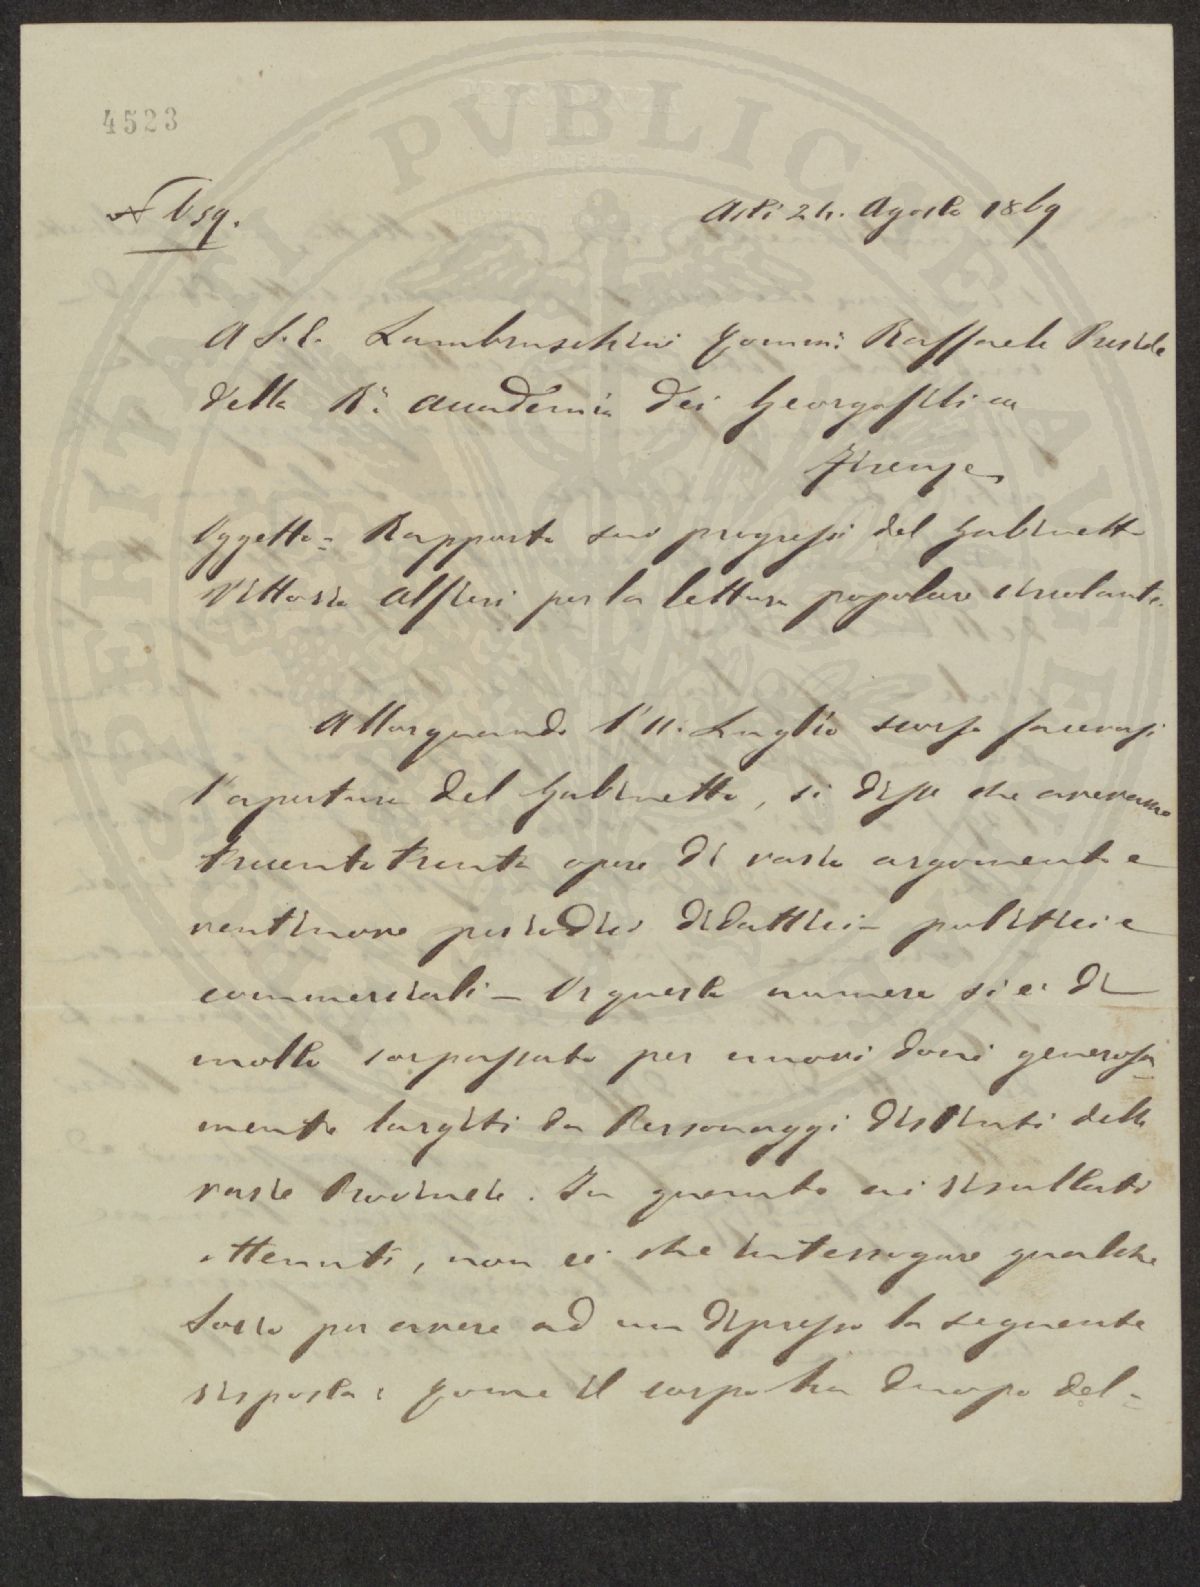 4523
Asti 24. Agosto 1869
A S. E. Lambruschini Comm: Raffaele Preside
della R. Accademia dei Georgofili in
Firenze
Oggetto = Rapporto sui progressi del Gabinetto
Vittorio Alfieri per la lettura popolare circolante.
Allorquando l'11. Luglio scorso facevasi
l'apertura del Gabinetto, si disse che avevamo
trecento trenta opere di vario argomento e
ventinove periodici didattici - politici e
commerciali - Or questo numero si è di
molto sorpassato per nuovi doni generosa
mente largiti da Personaggi distinti delle
varie Provincie. In quanto ai risultati
ottenuti, non è che interrogare qualche
Socio per avere ad un dipresso la seguente
risposta: Come il corpo ha duopo del=